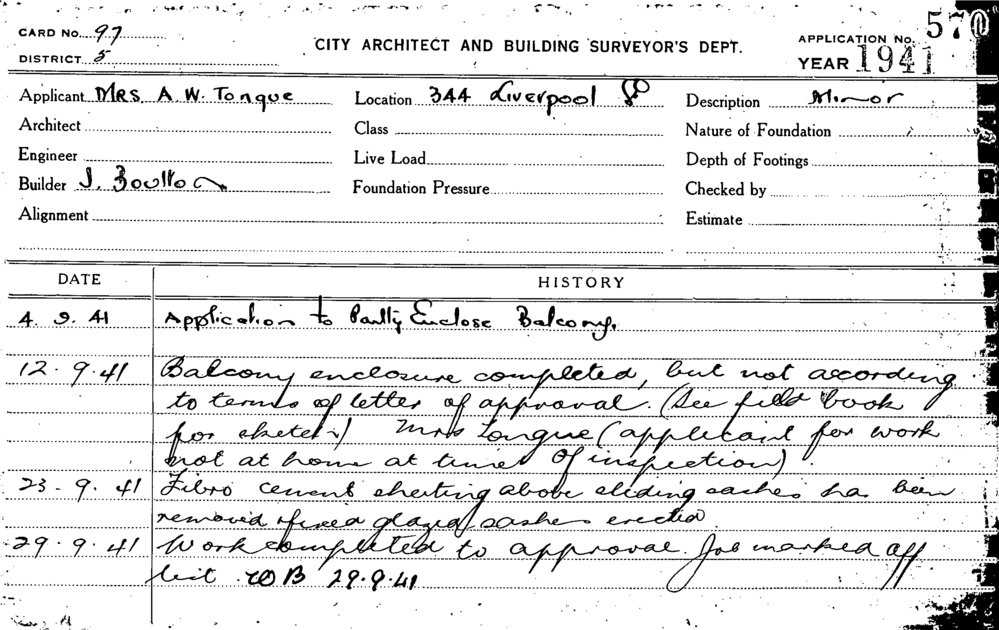 CARD No. 97
DISTRICT 5
CITY ARCHITECT AND BUILDING SURVEYOR'S DEPT.
APPLICATION No. 570
YEAR 1941
Applicant MRS A. W. Tongue
Location 344 Liverpool
Description Minor
Architect
Class
Nature of Foundation
Engineer
Live Load
Depth of Footings
Builder J. Boulton
Foundation Pressure
Checked by
Alignment
Estimate
DATE HISTORY
4. 9. 41 Application to Partly Enclose Balcony.
12. 9. 41 Balcony enclosure completed, but not according
to terms of letter of approval. (See field book
for sketch) Mrs Tongue (applicant for work
not at home at time of inspection)
23. 9. 41 Fibro cement sheeting above sliding sashes has been
removed & fixed glazed sashes erected
29. 9. 41 Work completed to approval. Job marked off
list 29.9.41